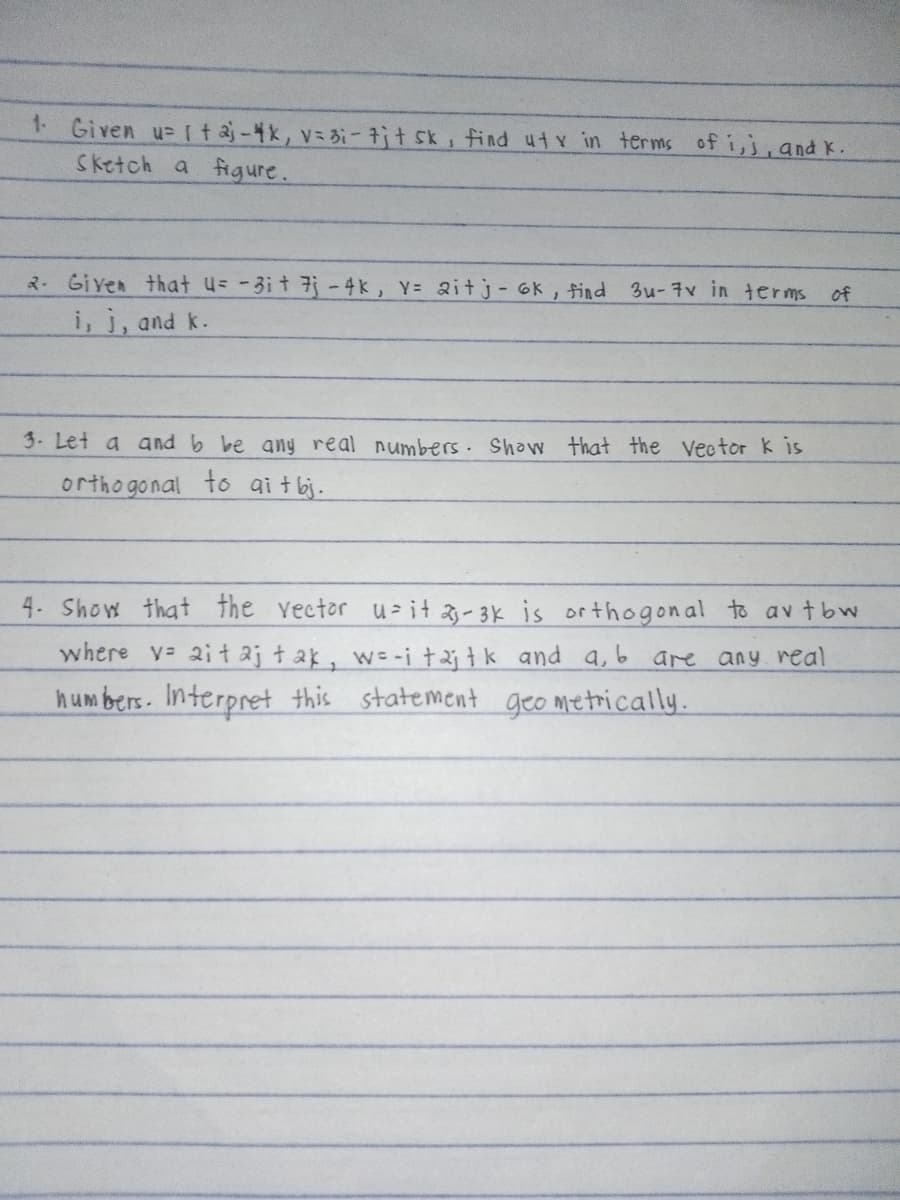 1. Given u= i + 2j - 4k, v= 3i - 7j + 5k, find u+v in terms of i, j, and k.
Sketch a figure.
2. Given that u= -3i + 7j - 4k, v= 2i + j - 6k, find 3u-7v in terms of
i, j, and k.
3. Let a and b be any real numbers. Show that the vector k is
orthogonal to ai + bj.
4. Show that the vector u = i + 2j - 3k is orthogonal to av + bw
where v= 2i + 2j + 2k, w= -i + 2j + k and a, b are any real
numbers. Interpret this statement geometrically.